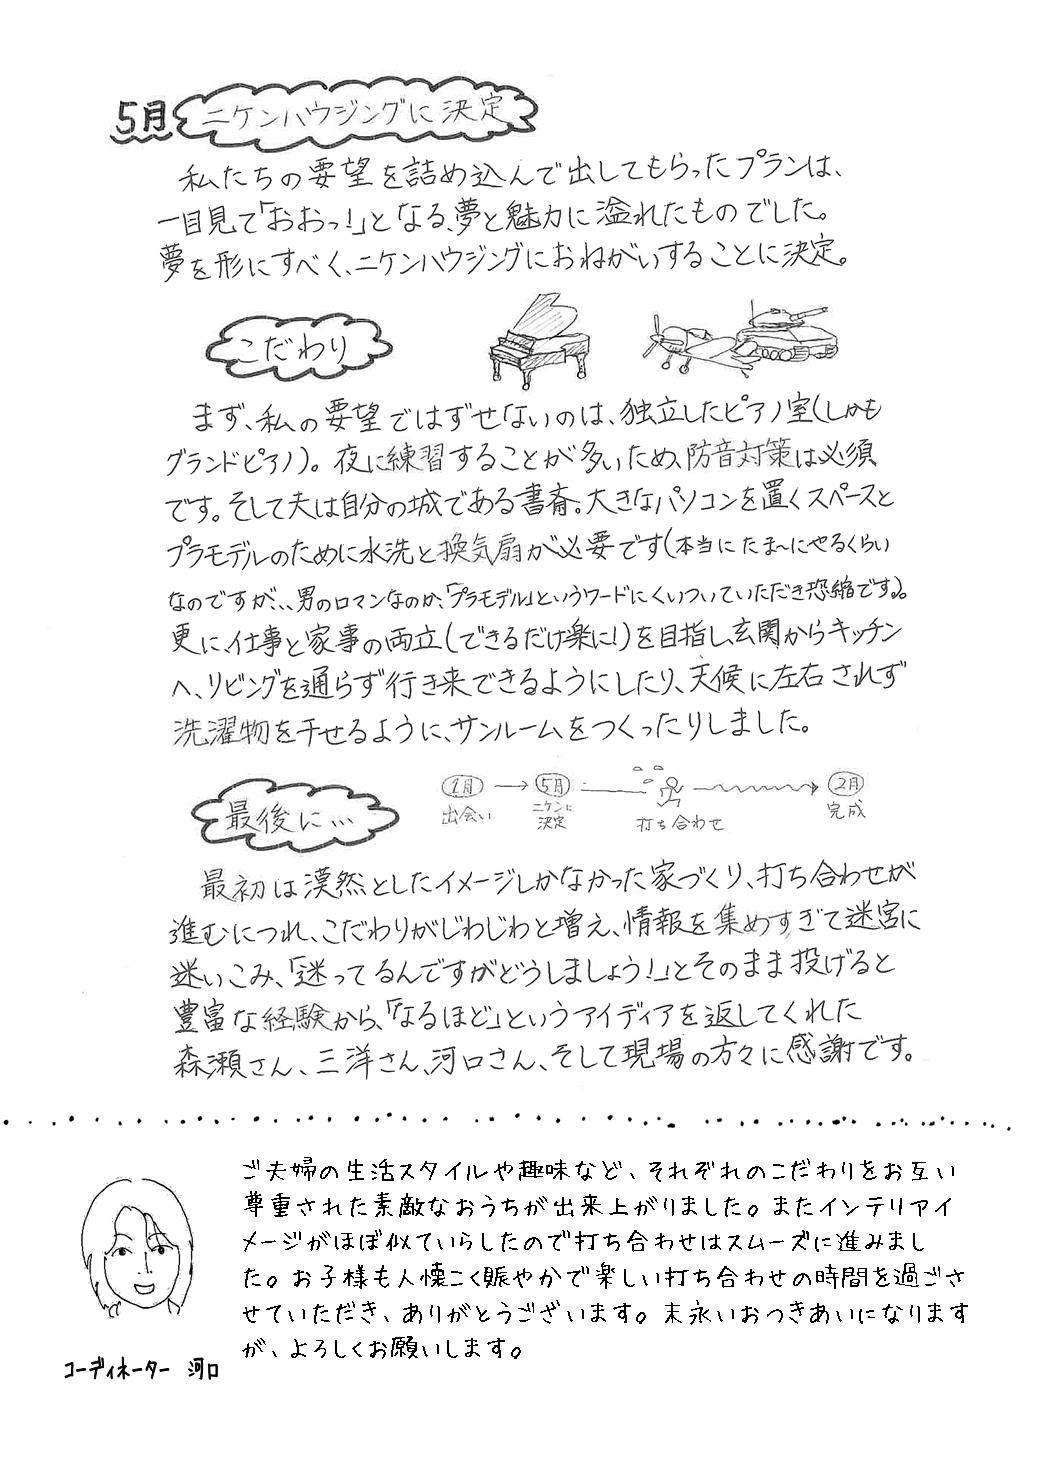 5月 ニケンハウジングに決定
私たちの要望を詰め込んで出してもらったプランは、
一目見て「おおっ!」となる、夢と魅力に溢れたものでした。
夢を形にすべく、ニケンハウジングにおねがいすることに決定。
こだわり
まず、私の要望ではずせないのは、独立したピアノ室(しかも
グランドピアノ)。夜に練習することが多いため、防音対策は必須
です。そして夫は自分の城である書斎。大きなパソコンを置くスペースと
プラモデルのために水洗と換気扇が必要です(本当にたま〜にやるくらい
なのですが、、、男のロマンなのか、「プラモデル」というワードにくいついていただき恐縮です)。
更に、仕事と家事の両立(できるだけ楽に!)を目指し、玄関からキッチン
へ、リビングを通らず行き来できるようにしたり、天候に左右されず
洗濯物を干せるように、サンルームをつくったりしました。
最後に…
1月 → 5月 2月
出会い ニケンに決定 打ち合わせ 完成
最初は漠然としたイメージしかなかった家づくり、打ち合わせが
進むにつれ、こだわりがじわじわと増え、情報を集めすぎて迷宮に
迷いこみ、「迷ってるんですがどうしましょう!」とそのまま投げると
豊富な経験から、「なるほど」というアイディアを返してくれた
森瀬さん、三洋さん、河口さん、そして現場の方々に感謝です。
ご夫婦の生活スタイルや趣味など、それぞれのこだわりをお互い
尊重された素敵なおうちが出来上がりました。またインテリアイ
メージがほぼ似ていらしたので打ち合わせはスムーズに進みまし
た。お子様も人懐こく賑やかで楽しい打ち合わせの時間を過ごさ
せていただき、ありがとうございます。末永いおつきあいになります
が、よろしくお願いします。
コーディネーター 河口